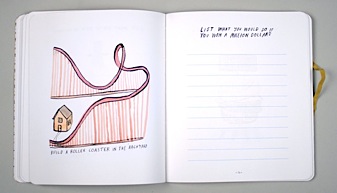 BUILD A ROLLER COASTER IN THE BACKYARD
LIST WHAT YOU WOULD DO IF
YOU WON A MILLION DOLLARS